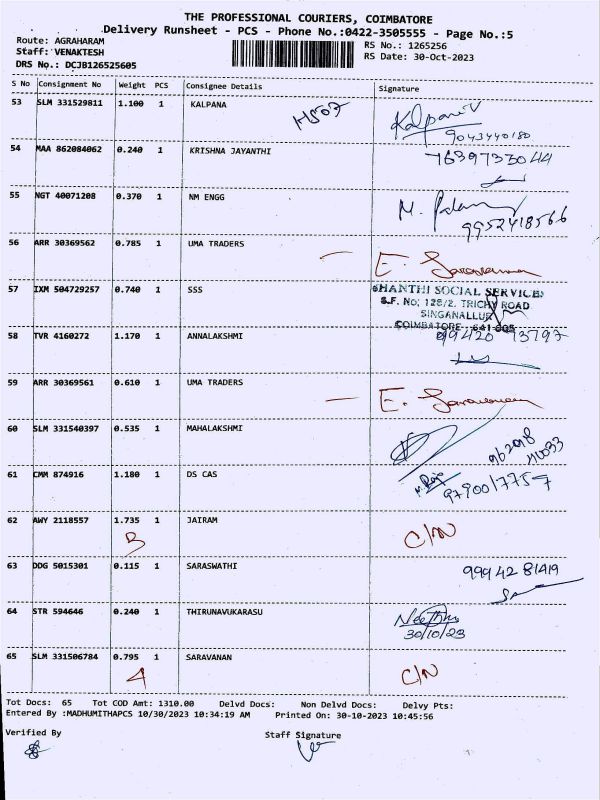 THE PROFESSIONAL COURIERS, COIMBATORE
Delivery Runsheet - PCS - Phone No.:0422-3505555 - Page No.:5
Route: AGRAHARAM
Staff: VENAKTESH
DRS No.: DCJB126525605
RS No.: 1265256
RS Date: 30-Oct-2023
S No Consignment No Weight PCS Consignee Details Signature
53 SLM 331529811 1.100 1 KALPANA H507 Kalpana V
9043440180
54 MAA 862084062 0.240 1 KRISHNA JAYANTHI 7639733044
55 NGT 40071208 0.370 1 NM ENGG M.
9952418566
56 ARR 30369562 0.785 1 UMA TRADERS — E. Saravanan
57 IXM 504729257 0.740 1 SSS SHANTHI SOCIAL SERVICES
S.F. No; 128/2. TRICHY ROAD
SINGANALLUR
COIMBATORE 641 005
58 TVR 4160272 1.170 1 ANNALAKSHMI 99420 73797
59 ARR 30369561 0.610 1 UMA TRADERS — E. Saravanan
60 SLM 331540397 0.535 1 MAHALAKSHMI
61 CMM 874916 1.180 1 DS CAS 9790017757
62 AWY 2118557 1.735 1 JAIRAM C/N
3
63 DDG 5015301 0.115 1 SARASWATHI 99942 81419
64 STR 594646 0.240 1 THIRUNAVUKARASU Neethu
30/10/23
65 SLM 331506784 0.795 1 SARAVANAN C/N
4
Tot Docs: 65 Tot COD Amt: 1310.00 Delvd Docs: Non Delvd Docs: Delvy Pts:
Entered By :MADHUMITHAPCS 10/30/2023 10:34:19 AM Printed On: 30-10-2023 10:45:56
Verified By Staff Signature